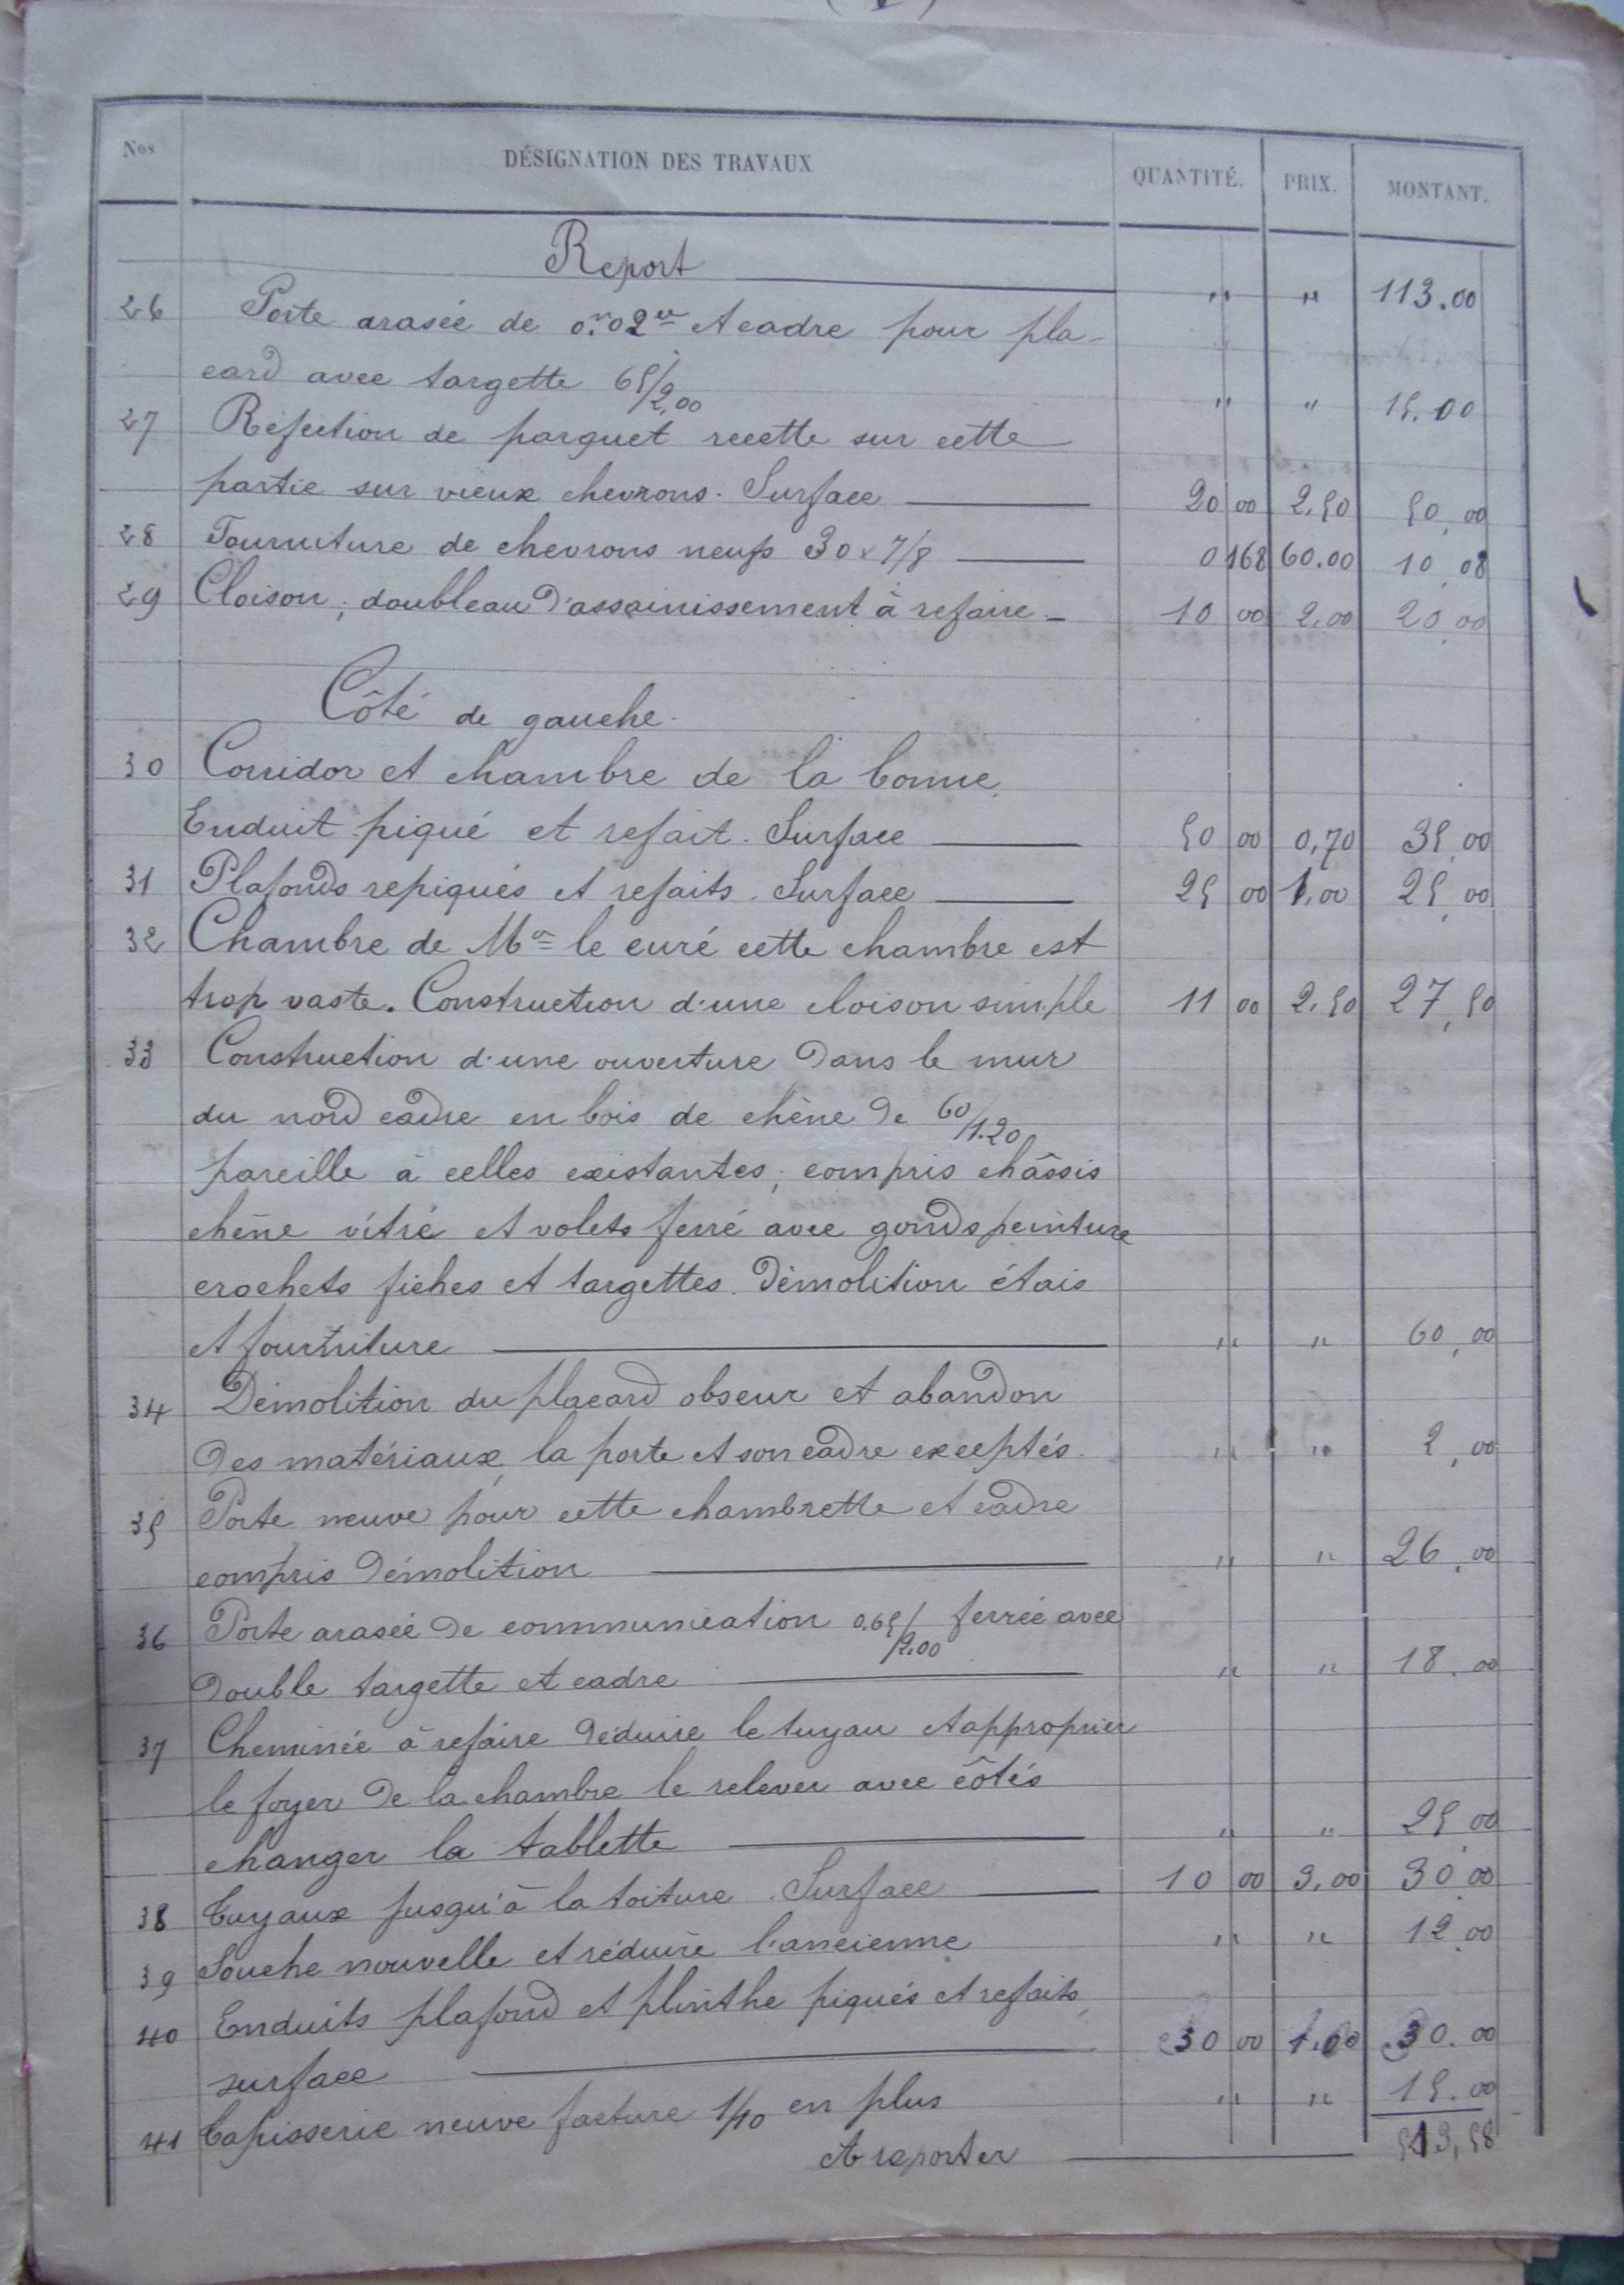 Nos DÉSIGNATION DES TRAVAUX QUANTITÉ. PRIX. MONTANT.
Report " " 113.00
26 Porte arasée de 0.m02 et cadre pour pla-
card avec targette 65/2,00 " " 15.00
27 Réfection de parquet recette sur cette
partie sur vieux chevrons. Surface 20 00 2,50 50,00
28 Fourniture de chevrons neufs 30 x 7/8 0 168 60.00 10,08
29 Cloison, doubleau d'assainissement à refaire - 10 00 2,00 20,00
Côté de gauche.
30 Corridor et chambre de la bonne.
Enduit piqué et refait. Surface 50 00 0,70 35,00
31 Plafonds repiqués et refaits. Surface 25 00 1,00 25,00
32 Chambre de Mr le curé cette chambre est
trop vaste. Construction d'une cloison simple 11 00 2,50 27,50
33 Construction d'une ouverture dans le mur
du nord cadre en bois de chêne de 60/1.20
pareille à celles existantes, compris châssis
chêne vitré et volets ferré avec gonds peinture
crochets fiches et targettes. Démolition étais
et fourniture " " 60,00
34 Démolition du placard obscur et abandon
des matériaux, la porte et son cadre exceptés. " " 2,00
35 Porte neuve pour cette chambrette et cadre
compris démolition " " 26,00
36 Porte arasée de communication 0.65/2.00 ferrée avec
double targette et cadre " " 18.00
37 Cheminée à refaire déduire le tuyau et approprier
le foyer de la chambre le relever avec côtés
changer la tablette " " 25,00
38 Tuyaux jusqu'à la toiture. Surface 10 00 3,00 30,00
39 Souche nouvelle et réduire l'ancienne " " 12,00
40 Enduits plafond et plinthe piqués et refaits,
surface 30 00 1.00 30.00
41 Tapisserie neuve facture 1/10 en plus " " 15.00
A reporter 513,58